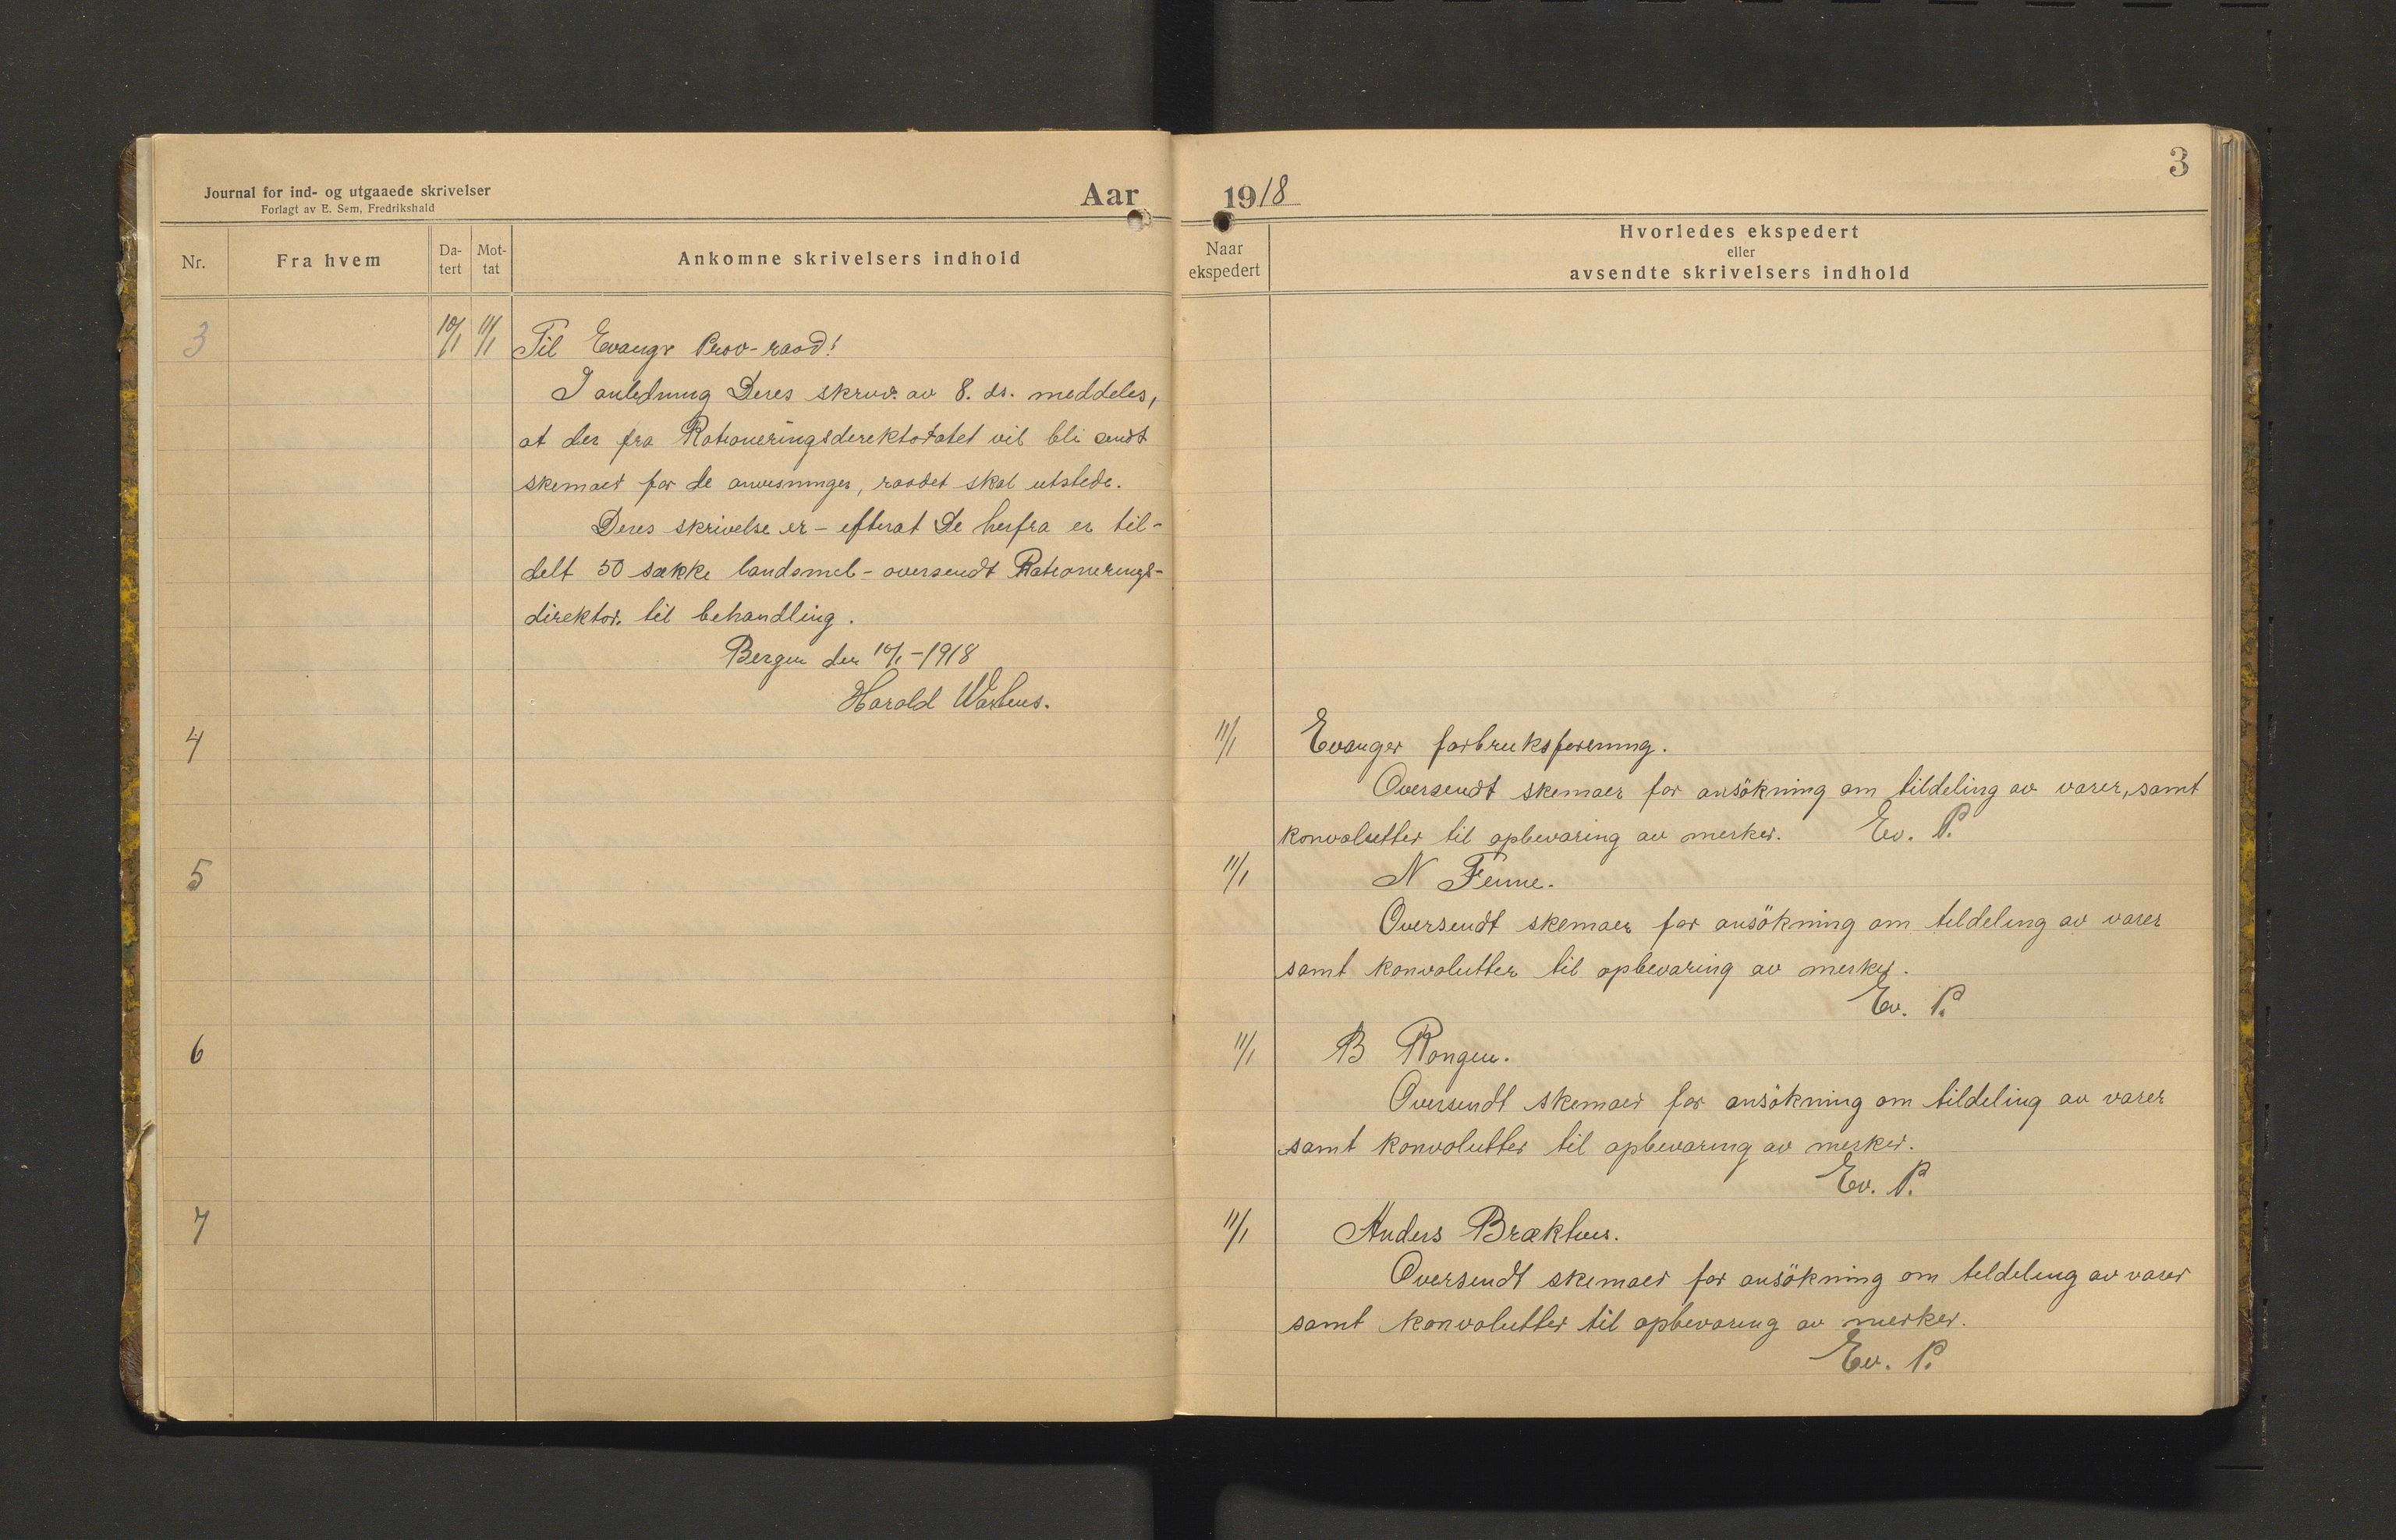 3
Journal for ind- og utgaaede skrivelser
Forlagt av E. Sem, Fredrikshald
Aar 1918
Nr.
Fra hvem
Da-
tert
Mot-
tat
Ankomne skrivelsers indhold
Naar
ekspedert
Hvorledes ekspedert
eller
avsendte skrivelsers indhold
3 10/1 11/1 Til Evangr Prov-raad!
I anledning Deres skriv. av 8. ds. meddeles,
at der fra Rationeringsdirektoratet vil bli sendt
skemaer for de anvisninger, raadet skal utstede.
Deres skrivelse er - efterat De herfra er til-
delt 50 sække landsmel - oversendt Rationerings-
direktor. til behandling.
Bergen den 10/1-1918
Harald
4 11/1 Evanger forbruksforening.
Oversendt skemaer for ansökning om tildeling av varer, samt
konvolutter til opbevaring av merker. Ev. P.
5 11/1 N Fenne.
Oversendt skemaer for ansökning om tildeling av varer
samt konvolutter til opbevaring av merker.
Ev. P.
6 11/1 B Rongen.
Oversendt skemaer for ansökning om tildeling av varer
samt konvolutter til opbevaring av merker.
Ev. P.
7 11/1 Anders Brækhus.
Oversendt skemaer for ansökning om tildeling av varer
samt konvolutter til opbevaring av merker.
Ev. P.